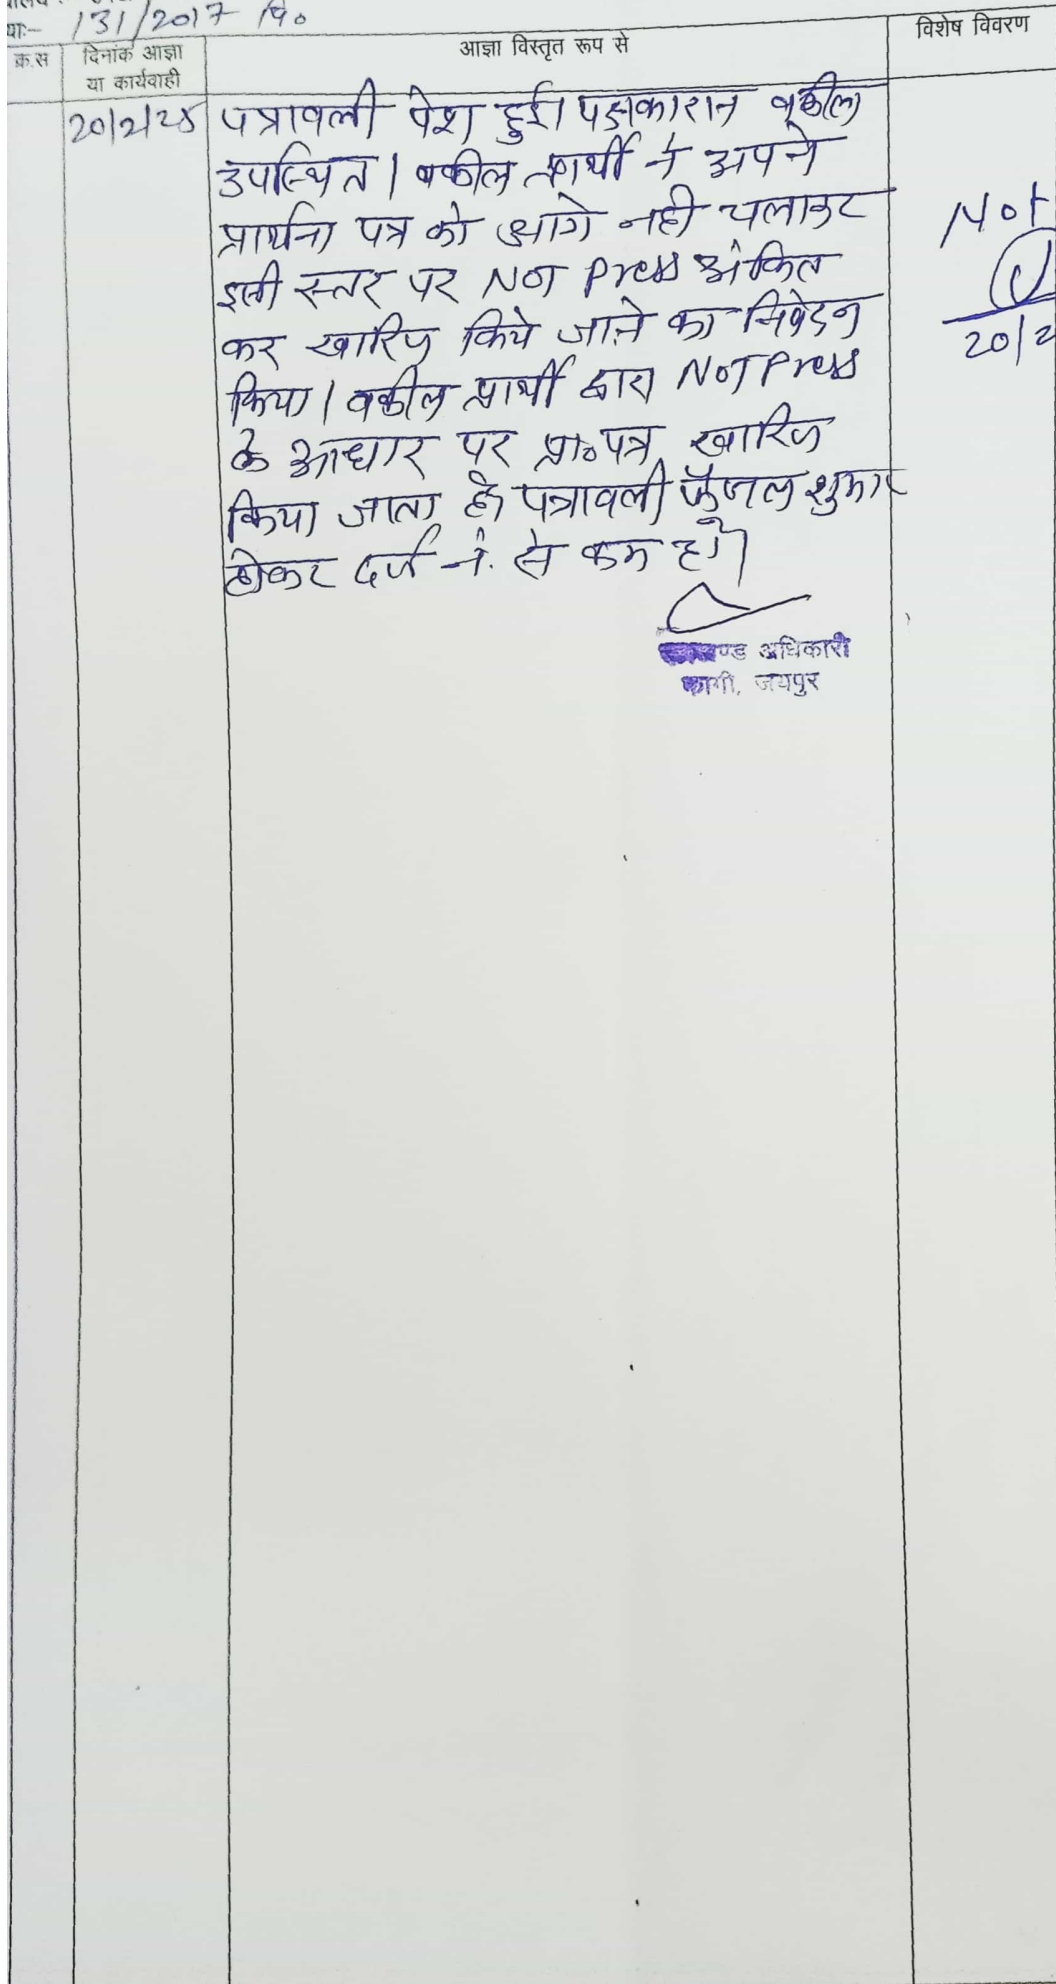 या:- 131/2017 प्रि०
क्र.स
दिनांक आज्ञा
या कार्यवाही
आज्ञा विस्तृत रूप से
विशेष विवरण
20/2/25
पत्रावली पेश हुई। पक्षकारान वकील
उपस्थित। वकील प्रार्थी ने अपने
प्रार्थना पत्र को आगे नही चलाकर
इसी स्तर पर Not Press अंकित
कर खारिज किये जाने का निवेदन
किया। वकील प्रार्थी द्वारा Not Press
के आधार पर प्रा०पत्र खारिज
किया जाता है पत्रावली फैसल शुमार
होकर दर्ज नं. से कम हो।
ण्ड अधिकारी
फागी, जयपुर
Not
20/2